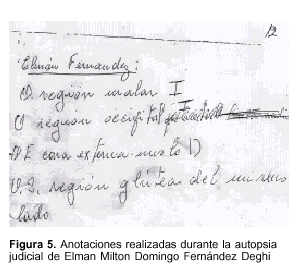 12
Elmán Fernandez:
O. región malar I
O región occipital
O E cara externa muslo D
O S. región glútea del mismo
lado
Figura 5. Anotaciones realizadas durante la autopsia
judicial de Elman Milton Domingo Fernández Deghi